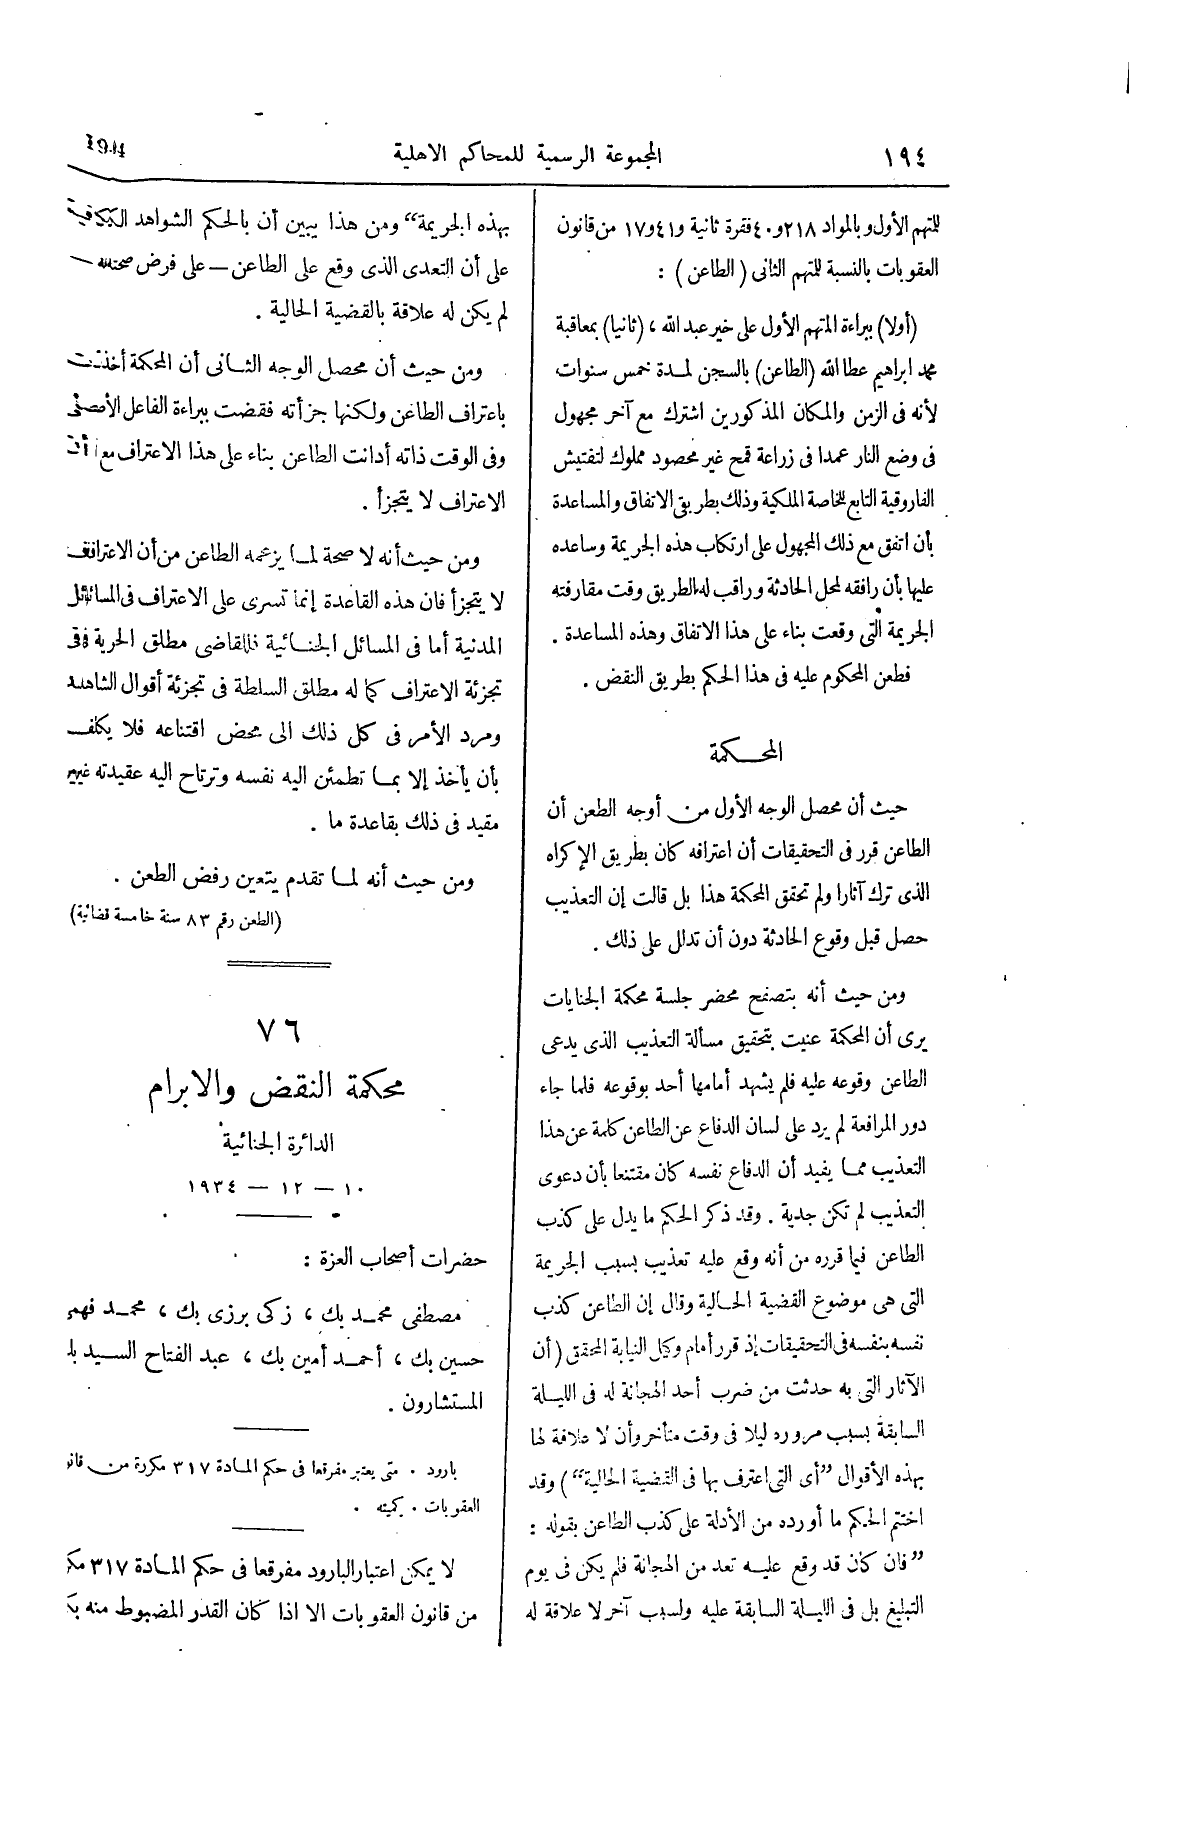 ١٩٤
المجموعة الرسمية للمحاكم الاهلية
للمتهم الأول وبالمواد ٢١٨ و ٤٠ فقرة ثانية و ٤١ و ١٧ من قانون
العقوبات بالنسبة للمتهم الثانى (الطاعن) :
(أولا) ببراءة المتهم الأول على خير عبد الله ، (ثانيا) بمعاقبة
محمد ابراهيم عطا الله (الطاعن) بالسجن لمدة خمس سنوات
لأنه فى الزمن والمكان المذكورين اشترك مع آخر مجهول
فى وضع النار عمدا فى زراعة قمح غير محصود مملوك لتفتيش
الفاروقية التابع للخاصة الملكية وذلك بطريق الاتفاق والمساعدة
بأن اتفق مع ذلك المجهول على ارتكاب هذه الجريمة وساعده
عليها بأن رافقه لمحل الحادثة وراقب له الطريق وقت مقارفته
الجريمة التى وقعت بناء على هذا الاتفاق وهذه المساعدة .
فطعن المحكوم عليه فى هذا الحكم بطريق النقض .
المحكمة
حيث أن محصل الوجه الأول من أوجه الطعن أن
الطاعن قرر فى التحقيقات أن اعترافه كان بطريق الإكراه
الذى ترك آثارا ولم تحقق المحكمة هذا بل قالت إن التعذيب
حصل قبل وقوع الحادثة دون أن تدلل على ذلك .
ومن حيث أنه بتصفح محضر جلسة محكمة الجنايات
يرى أن المحكمة عنيت بتحقيق مسألة التعذيب الذى يدعى
الطاعن وقوعه عليه فلم يشهد أمامها أحد بوقوعه فلما جاء
دور المرافعة لم يرد على لسان الدفاع عن الطاعن كلمة عن هذا
التعذيب مما يفيد أن الدفاع نفسه كان مقتنعا بأن دعوى
التعذيب لم تكن جدية . وقد ذكر الحكم ما يدل على كذب
الطاعن فيما قرره من أنه وقع عليه تعذيب بسبب الجريمة
التى هى موضوع القضية الحالية وقال إن الطاعن كذب
نفسه بنفسه فى التحقيقات إذ قرر أمام وكيل النيابة المحقق (أن
الآثار التى به حدثت من ضرب أحد الهجانة له فى الليلة
السابقة بسبب مروره ليلا فى وقت متأخر وأن لا علاقة لها
بهذه الأقوال "أى التى اعترف بها فى القضية الحالية") وقد
اختتم الحكم ما أورده من الأدلة على كذب الطاعن بقوله :
"فان كان قد وقع عليه تعد من الهجانة فلم يكن فى يوم
التبليغ بل فى الليلة السابقة عليه ولسبب آخر لا علاقة له
بهذه الجريمة" ومن هذا يبين أن بالحكم الشواهد الكافية
على أن التعدى الذى وقع على الطاعن — على فرض صحته —
لم يكن له علاقة بالقضية الحالية .
ومن حيث أن محصل الوجه الثانى أن المحكمة أخذت
باعتراف الطاعن ولكنها جزأته فقضت ببراءة الفاعل الأصلى
وفى الوقت ذاته أدانت الطاعن بناء على هذا الاعتراف مع أن
الاعتراف لا يتجزأ .
ومن حيث أنه لا صحة لما يزعمه الطاعن من أن الاعتراف
لا يتجزأ فان هذه القاعدة إنما تسرى على الاعتراف فى المسائل
المدنية أما فى المسائل الجنائية فللقاضى مطلق الحرية فى
تجزئة الاعتراف كما له مطلق السلطة فى تجزئة أقوال الشاهد
ومرد الأمر فى كل ذلك الى محض اقتناعه فلا يكلف
بأن يأخذ إلا بما تطمئن اليه نفسه وترتاح اليه عقيدته غير
مقيد فى ذلك بقاعدة ما .
ومن حيث أنه لما تقدم يتعين رفض الطعن .
(الطعن رقم ٨٣ سنة خامسة قضائية)
٧٦
محكمة النقض والابرام
الدائرة الجنائية
١٠ — ١٢ — ١٩٣٤
حضرات أصحاب العزة :
مصطفى محمد بك ، زكى برزى بك ، محمد فهمى
حسين بك ، أحمد أمين بك ، عبد الفتاح السيد
المستشارون .
بارود . متى يعتبر مفرقعا فى حكم المادة ٣١٧ مكررة من
العقوبات . كميته .
لا يمكن اعتبار البارود مفرقعا فى حكم المادة ٣١٧
من قانون العقوبات الا اذا كان القدر المضبوط منه